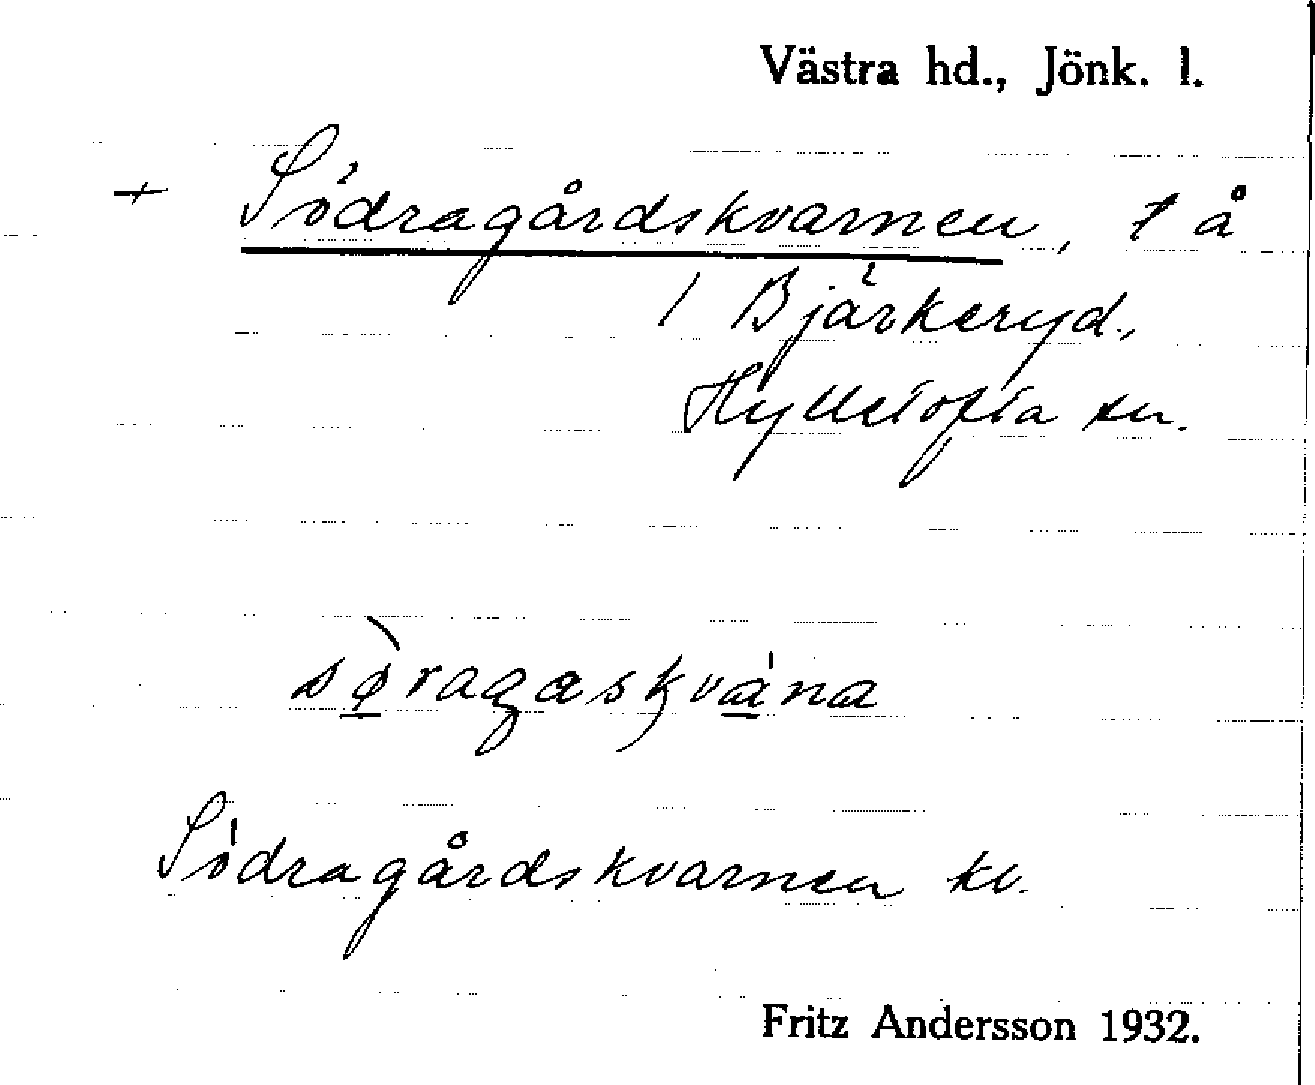 Västra hd., Jönk. l.
+ Södragårdskvarnen, t å
/ Bjärkeryd.,
Hylletofta sn.
søragaskvana
Södragårdskvarnen kv.
Fritz Andersson 1932.